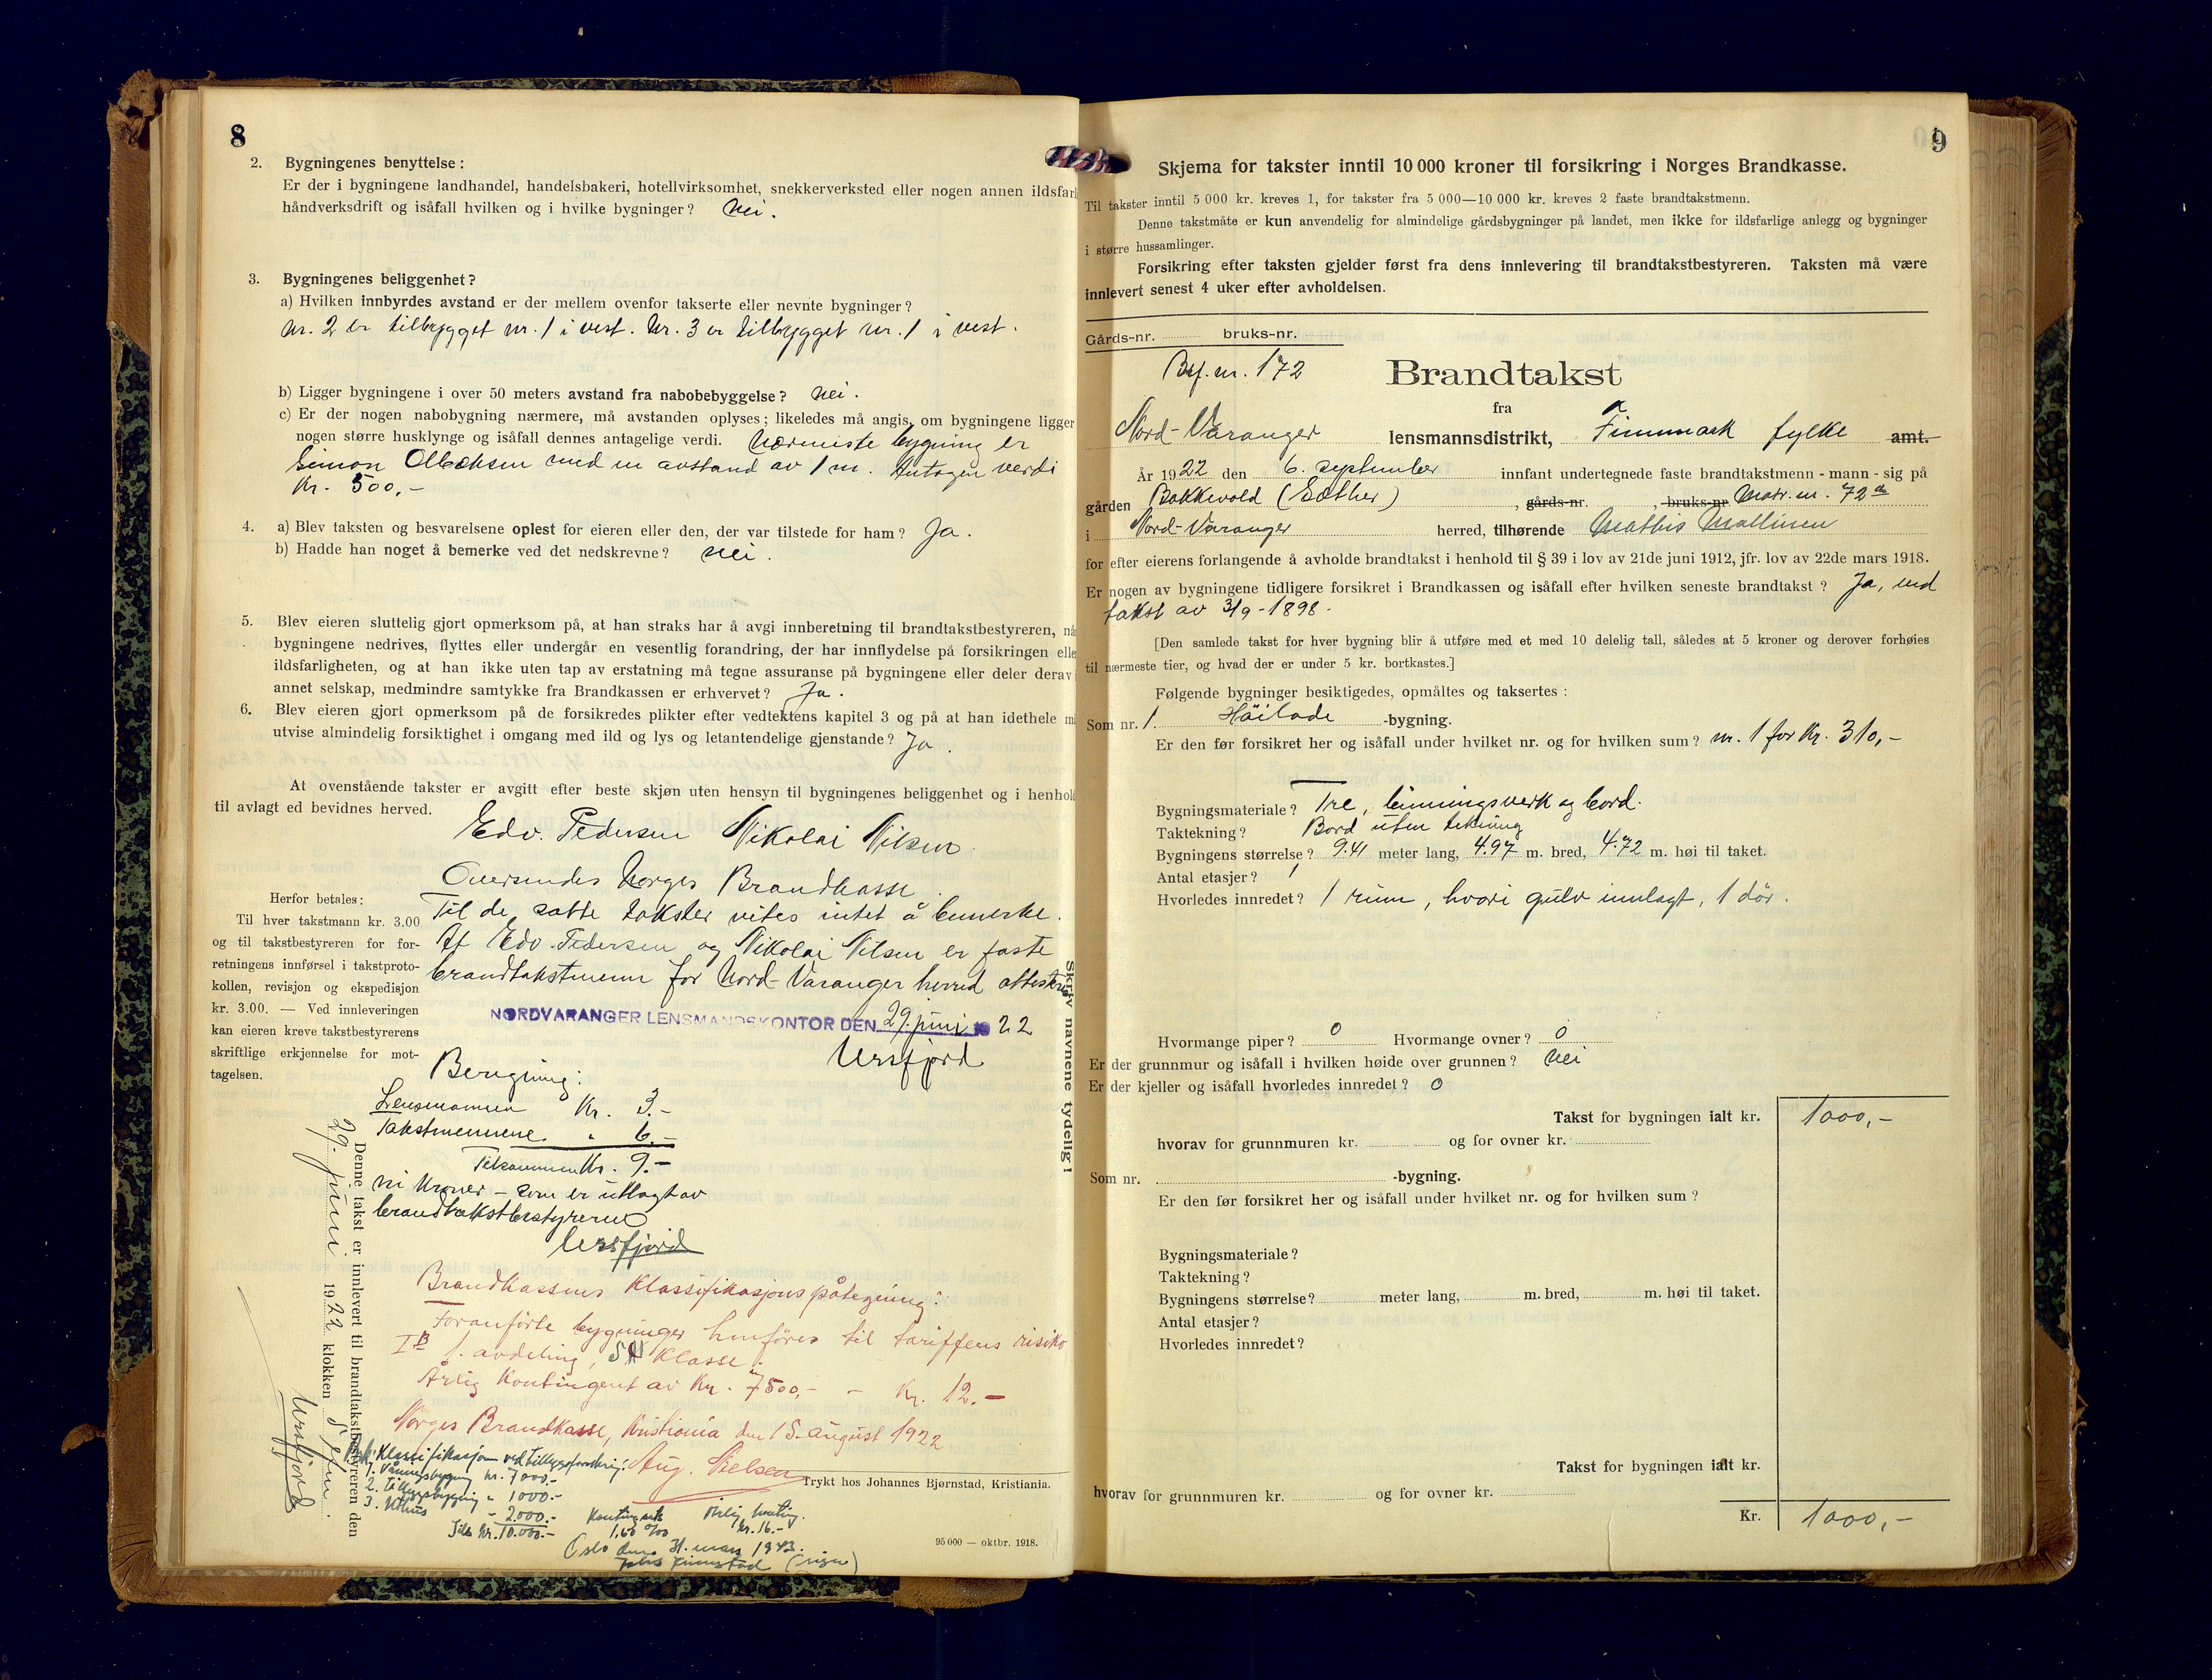 8
2. Bygningenes benyttelse:
Er der i bygningene landhandel, handelsbakeri, hotellvirksomhet, snekkerverksted eller nogen annen ildsfarl
håndverksdrift og isåfall hvilken og i hvilke bygninger? Nei.
3. Bygningenes beliggenhet?
a) Hvilken innbyrdes avstand er der mellem ovenfor takserte eller nevnte bygninger?
Nr. 2 er tilbygget nr. 1 i vest. Nr. 3 er tilbygget nr. 1 i vest.
b) Ligger bygningene i over 50 meters avstand fra nabobebyggelse? Nei.
c) Er der nogen nabobygning nærmere, må avstanden oplyses; likeledes må angis, om bygningene ligger
nogen større husklynge og isåfall dennes antagelige verdi. Nærmeste bygning er
Simon med en avstand av 1 m. Antagen verdi
Kr. 500,-
4. a) Blev taksten og besvarelsene oplest for eieren eller den, der var tilstede for ham? Ja.
b) Hadde han noget å bemerke ved det nedskrevne? Nei.
5. Blev eieren sluttelig gjort opmerksom på, at han straks har å avgi innberetning til brandtakstbestyreren, når
bygningene nedrives, flyttes eller undergår en vesentlig forandring, der har innflydelse på forsikringen elle
ildsfarligheten, og at han ikke uten tap av erstatning må tegne assuranse på bygningene eller deler derav
annet selskap, medmindre samtykke fra Brandkassen er erhvervet? Ja.
6. Blev eieren gjort opmerksom på de forsikredes plikter efter vedtektens kapitel 3 og på at han idethele m
utvise almindelig forsiktighet i omgang med ild og lys og letantendelige gjenstande? Ja.
At ovenstående takster er avgitt efter beste skjøn uten hensyn til bygningenes beliggenhet og i henhold
til avlagt ed bevidnes herved.
Edv. Pedersen Nikolai Nilsen
Oversendes Norges Brandkasse.
Til de satte takster vites intet å bemerke.
At Edv. Pedersen og Nikolai Nilsen er faste
brandtakstmenn for Nord-Varanger herred attesteres
NORDVARANGER LENSMANDSKONTOR DEN 29. juni 1922
Ursfjord
Herfor betales:
Til hver takstmann kr. 3.00
og til takstbestyreren for for-
retningens innførsel i takstproto-
kollen, revisjon og ekspedisjon
kr. 3.00. — Ved innleveringen
kan eieren kreve takstbestyrerens
skriftlige erkjennelse for mot-
tagelsen.
Skriv navnene tydelig!
Beregning:
Lensmannen Kr. 3.-
Takstmennene " 6.-
Tilsammen Kr. 9.-
ni kroner - som er utlagt av
brandtakstbestyreren
Ursfjord
Denne takst er innlevert til brandtakstbestyreren den
29. juni 1922 klokken 5 efm.
Ursfjord
Brandkassens klassifikasjonspåtegning:
Foranførte bygninger henføres til tariffens risiko
I B 1. avdeling, 5 klasse.
Årlig kontingent av Kr. 7500,- - Kr. 12.-
Norges Brandkasse, Kristiania den 15. august 1922
Aug. Nielsen
Klassifikasjon ved tilleggsforsikring:
1. Våningsbygning kr. 7000.-
2. Tilleggsbygning " 1000.-
3. Uthus - 2.000.-
Tils kr. 10.000.-
Kontingent 1,60 ‰
Årlig konting. kr. 16.-
Oslo den 31. mars 1943.
(sign)
Trykt hos Johannes Bjørnstad, Kristiania.
95 000 — oktbr. 1918.
9
Skjema for takster inntil 10 000 kroner til forsikring i Norges Brandkasse.
Til takster inntil 5 000 kr. kreves 1, for takster fra 5 000—10 000 kr. kreves 2 faste brandtakstmenn.
Denne takstmåte er kun anvendelig for almindelige gårdsbygninger på landet, men ikke for ildsfarlige anlegg og bygninger
i større hussamlinger.
Forsikring efter taksten gjelder først fra dens innlevering til brandtakstbestyreren. Taksten må være
innlevert senest 4 uker efter avholdelsen.
Gårds-nr. bruks-nr.
Bef. nr. 172
Brandtakst
fra
Nord-Varanger lensmannsdistrikt, Finnmark fylke amt.
År 1922 den 6. september innfant undertegnede faste brandtakstmenn - mann - sig på
gården Bakkevold (Sæther), gårds-nr. , bruks-nr. Matr. nr. 72
i Nord-Varanger herred, tilhørende Mathis Mallinen
for efter eierens forlangende å avholde brandtakst i henhold til § 39 i lov av 21de juni 1912, jfr. lov av 22de mars 1918.
Er nogen av bygningene tidligere forsikret i Brandkassen og isåfall efter hvilken seneste brandtakst? Ja, ved
takst av 3/9-1898.
[Den samlede takst for hver bygning blir å utføre med et med 10 delelig tall, således at 5 kroner og derover forhøies
til nærmeste tier, og hvad der er under 5 kr. bortkastes.]
Følgende bygninger besiktigedes, opmåltes og taksertes:
Som nr. 1. Höilade -bygning.
Er den før forsikret her og isåfall under hvilket nr. og for hvilken sum? nr. 1 for Kr. 310,-
Bygningsmateriale? Tre, binningsverk og bord.
Taktekning? Bord uten tekning
Bygningens størrelse? 9.41 meter lang, 4.97 m. bred, 4.72 m. høi til taket.
Antal etasjer? 1
Hvorledes innredet? 1 rum, hvori gulv innlagt, 1 dör.
Hvormange piper? 0 Hvormange ovner? 0
Er der grunnmur og isåfall i hvilken høide over grunnen? Nei
Er der kjeller og isåfall hvorledes innredet? 0
Takst for bygningen ialt kr. 1000,-
hvorav for grunnmuren kr. og for ovner kr.
Som nr. -bygning.
Er den før forsikret her og isåfall under hvilket nr. og for hvilken sum?
Bygningsmateriale?
Taktekning?
Bygningens størrelse? meter lang, m. bred, m. høi til taket.
Antal etasjer?
Hvorledes innredet?
Takst for bygningen ialt kr.
hvorav for grunnmuren kr. og for ovner kr.
Kr. 1000,-